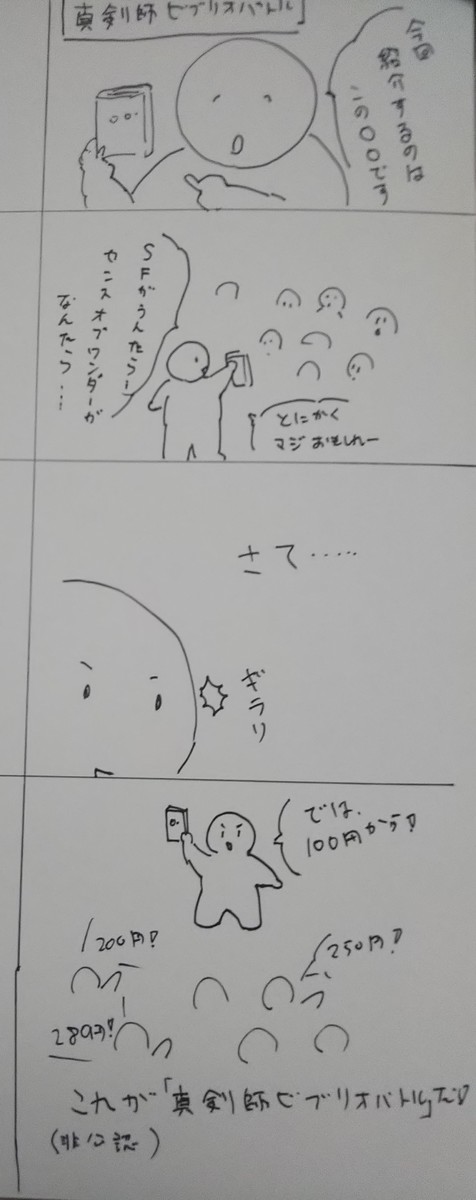 真剣師ビブリオバトル
今回
紹介するのは
この〇〇です
SFがうんたらー
センスオブワンダーが
なんたら…
とにかく
マジおもしれー
さて……
ギラリ
では、
100円から!
200円!
250円!
280円!
これが「真剣師ビブリオバトル」だ!
(非公認)